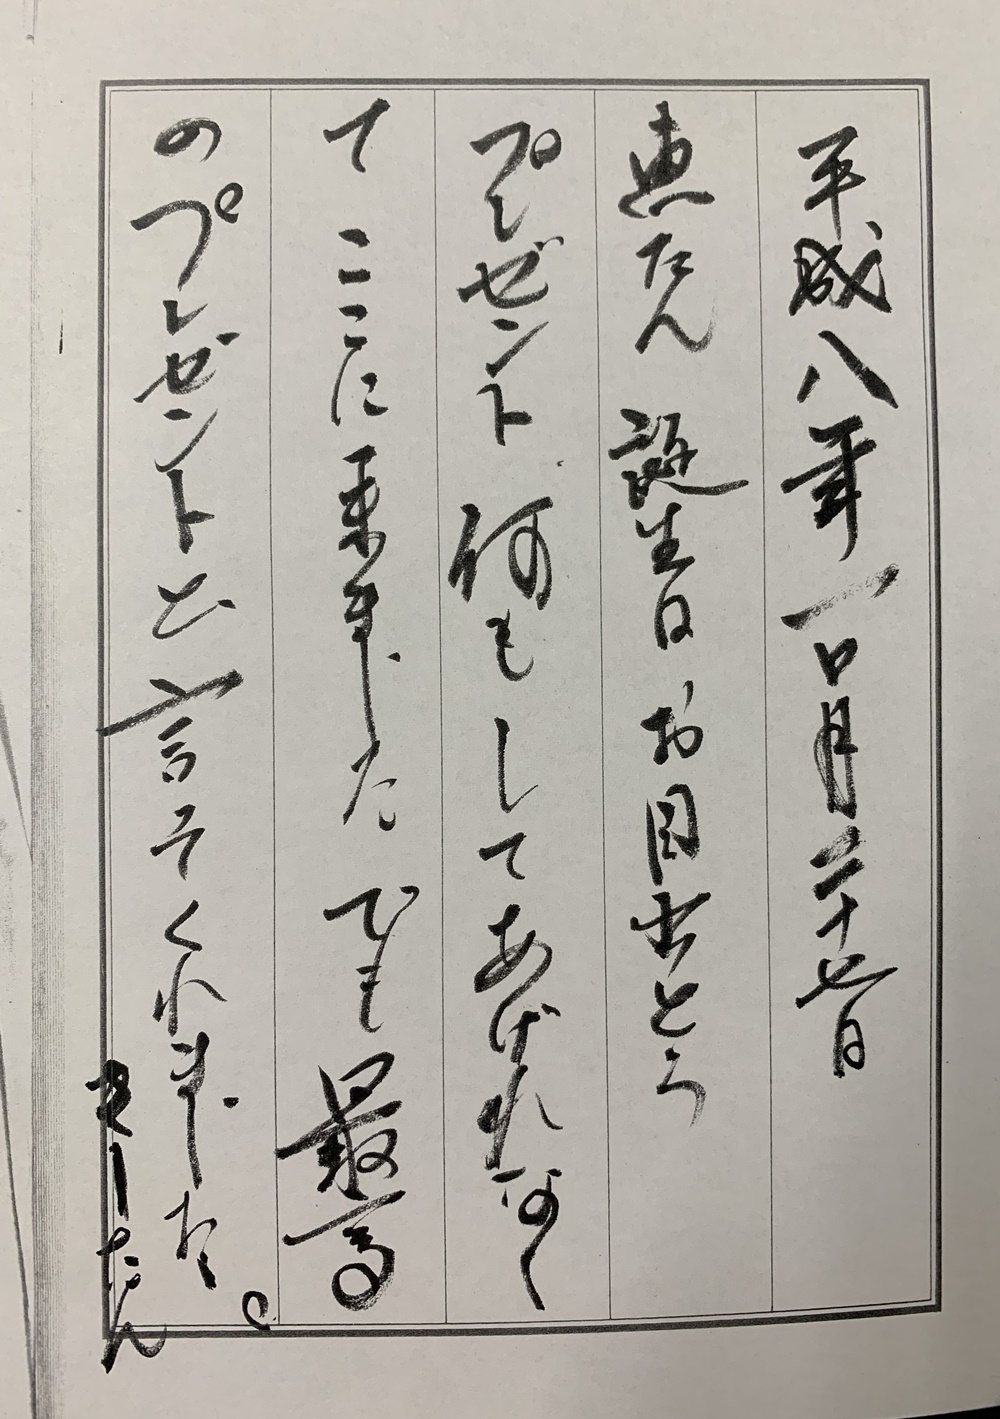 平成八年一月二十七日
恵たん 誕生日 お目出とう
プレゼント 何もしてあげれなく
て ここに来ました でも 最高
のプレゼントと言ってくれました。
まーたん